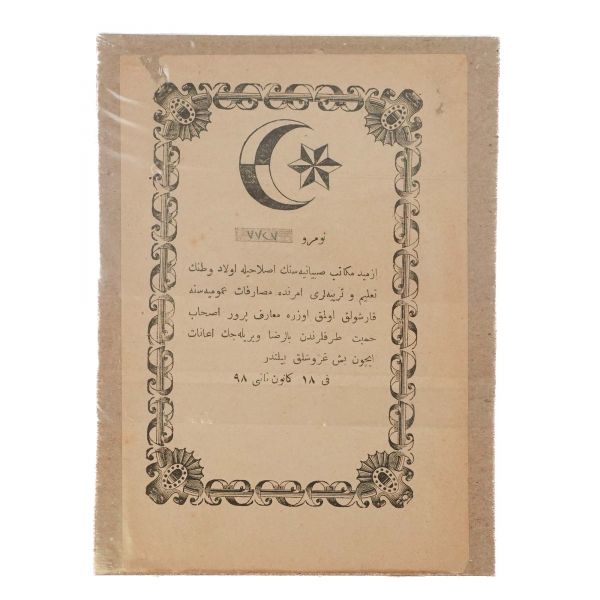 نومرو
ازمید مکاتب صبیانیه‌سنك اصلاحیله اولاد وطنك
تعلیم و تربیه‌لری امرنده مصارفات عمومیه‌سنه
قارشولق اولمق اوزره معارف پرور اصحاب
حمیت طرفلرندن بالرضا ویریله‌جك اعانات
ایچون بش غروشلق بیلتدر
فی ١٨ کانون ثانی ٩٨